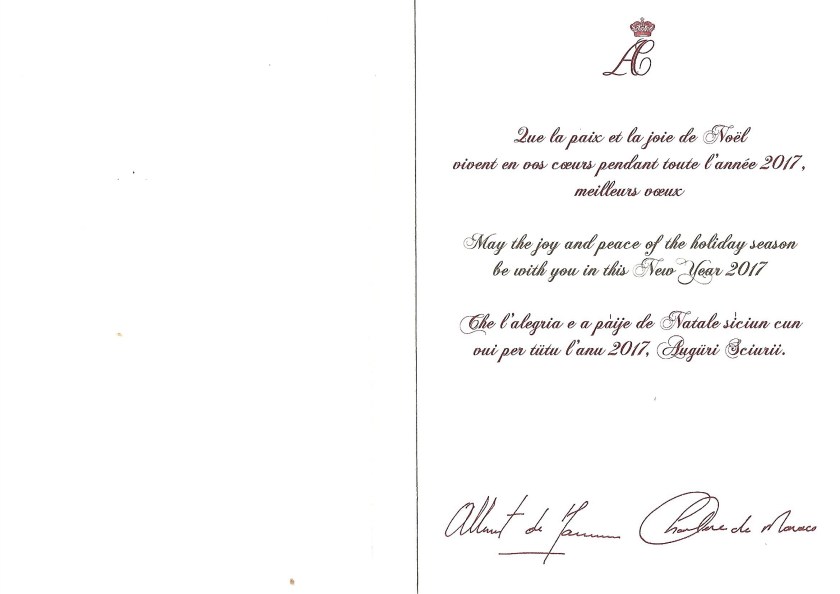 AC
Que la paix et la joie de Noël
vivent en vos cœurs pendant toute l'année 2017,
meilleurs vœux
May the joy and peace of the holiday season
be with you in this New Year 2017
Che l'alegria e a pàije de Natale sìciun cun
vui per tütu l'anu 2017, Augüri Sciurii.
Albert de Monaco Charlene de Monaco